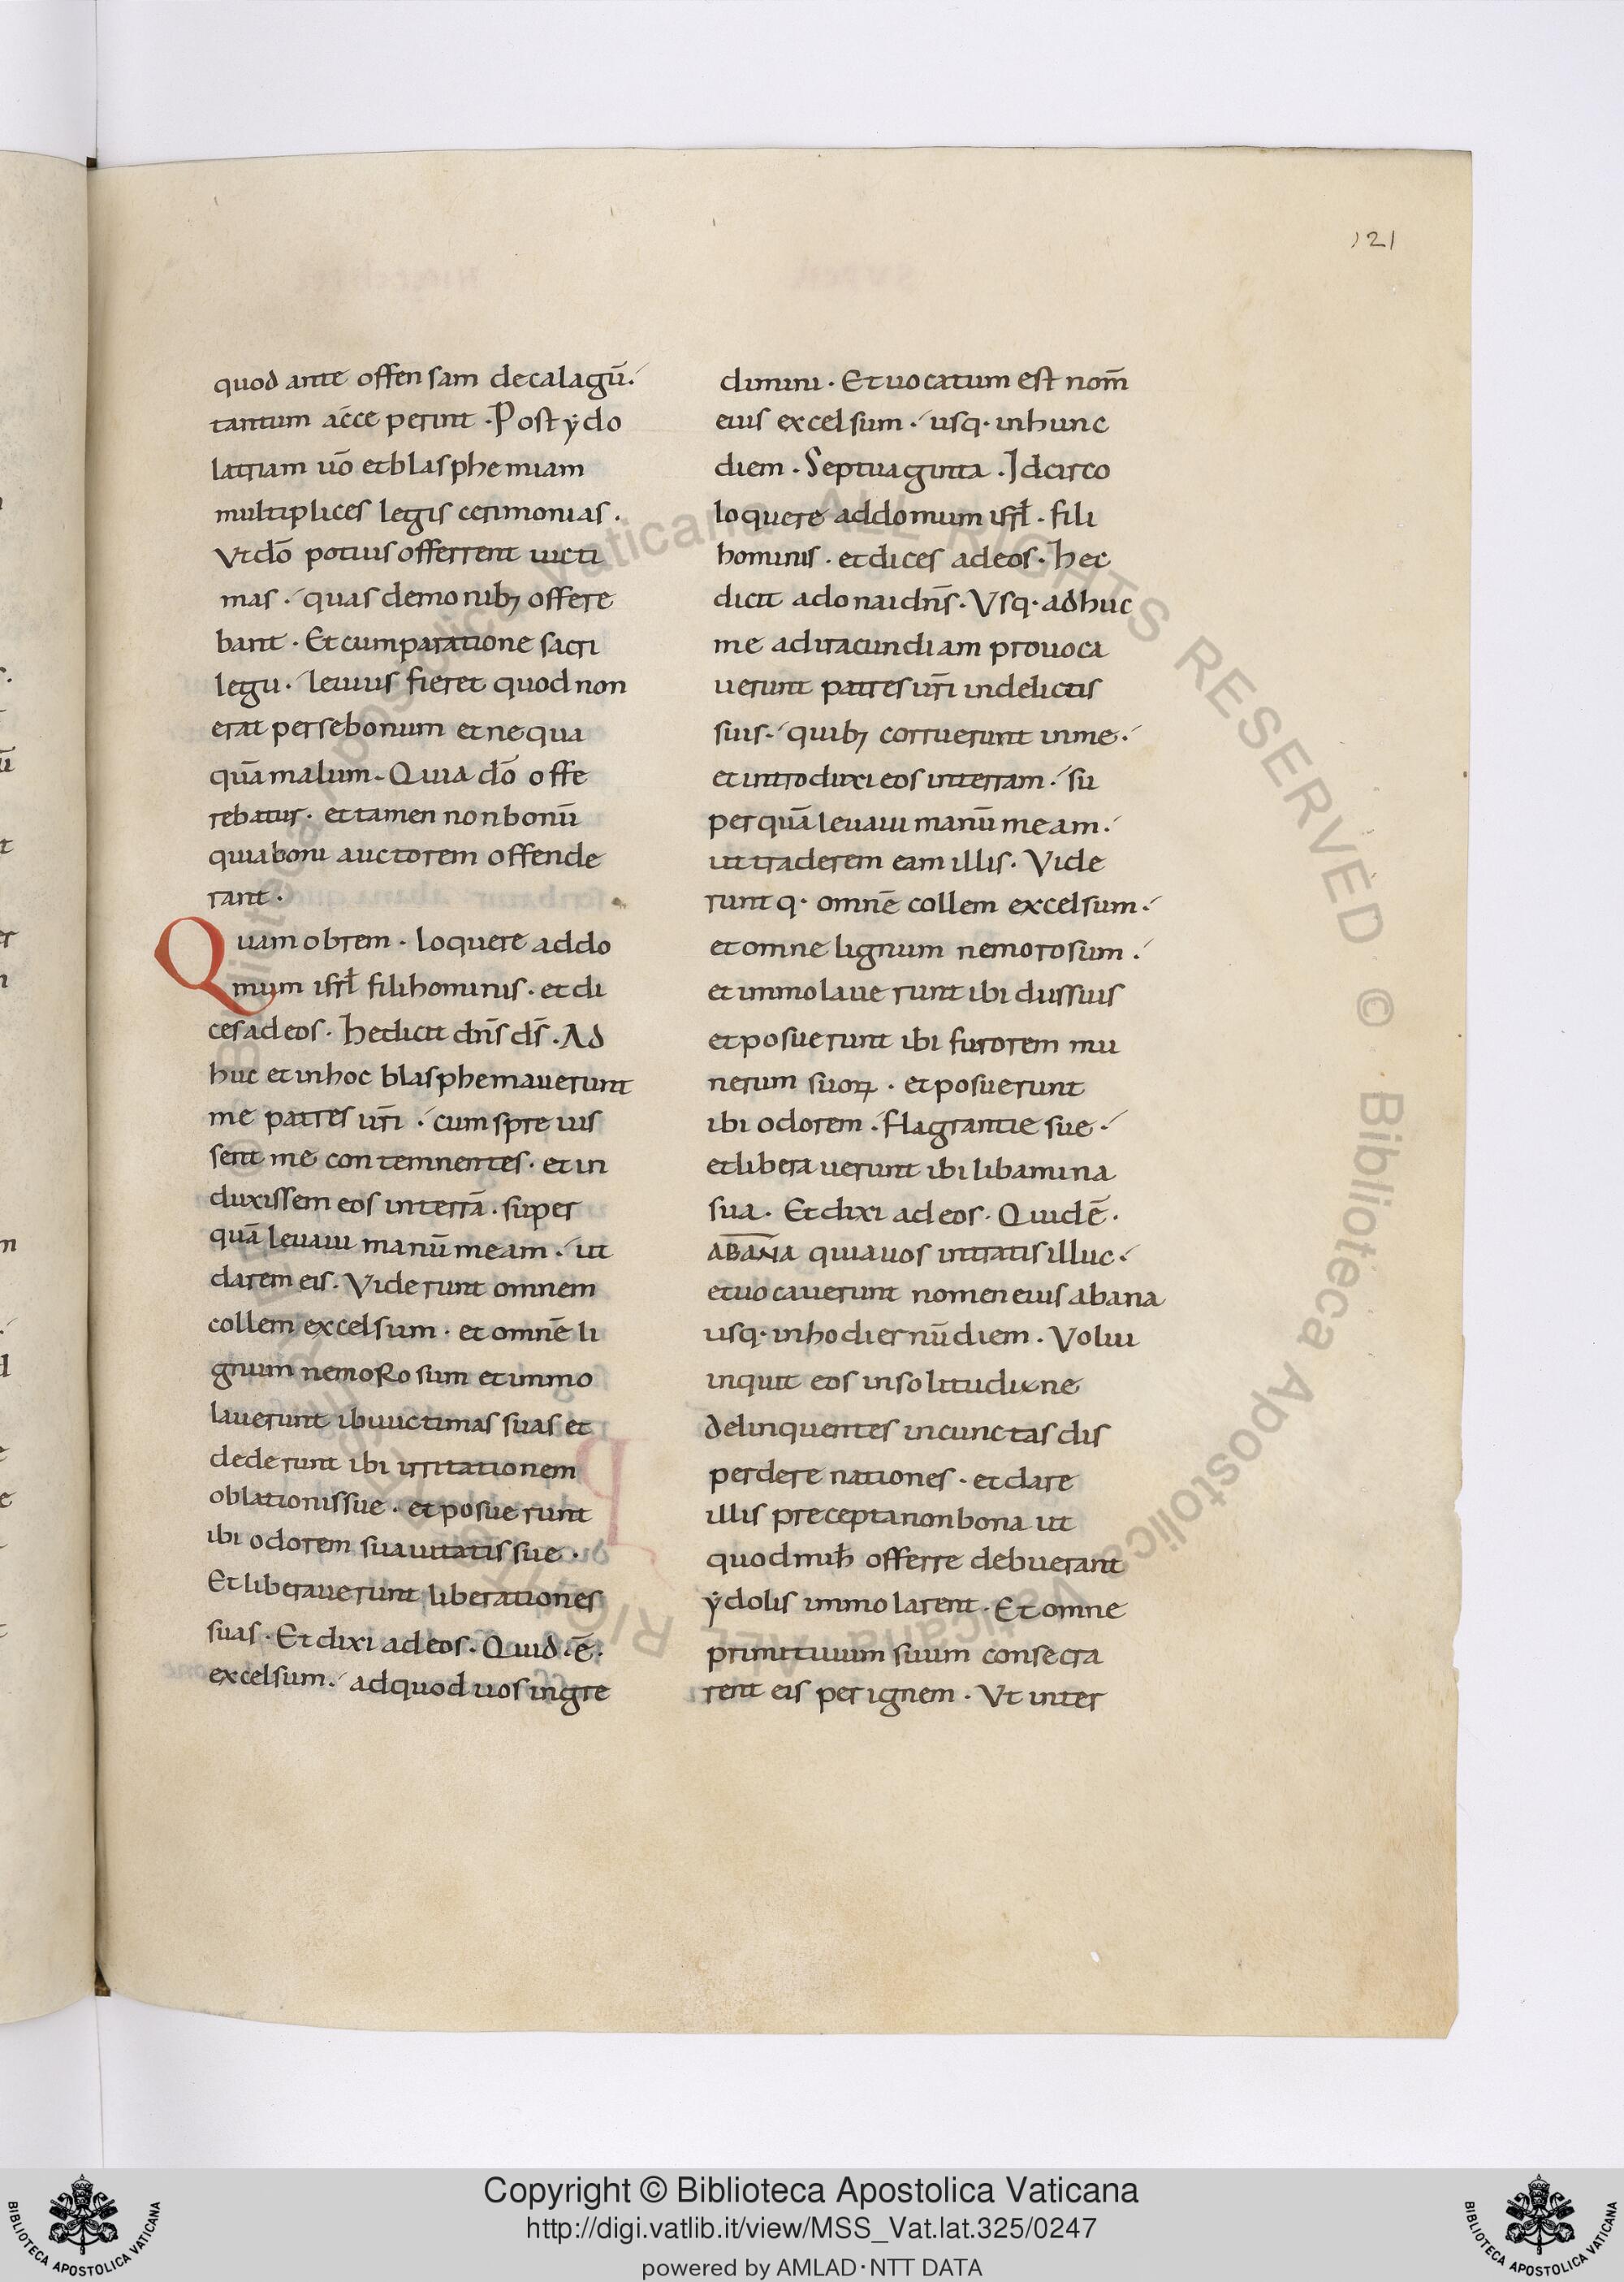 121
quod ante offensam decalagū.
tantum acce perint. Post ydo
latriam uō et blasphemiam
multiplices legis cerimonias.
Vt dō potius offerrent uicti
mas. quas demonibꝫ offere
bant. Et cumparatione sacri
legii. leuius fieret quod non
erat per se bonum et nequa
quā malum. Quia dō offe
rebatur. et tamen non bonū
quia boni auctorem offende
rant.
Quam obrem. loquere ad do
mum isrł fili hominis. et di
ces ad eos. Hec dicit dn̄s ds̄. Ad
huc et in hoc blasphemauerunt
me patres ur̄i. cum spreuis
sent me contemnentes. et in
duxissem eos in terrā. super
quā leuaui manū meam. ut
darem eis. Viderunt omnem
collem excelsum. et omnē li
gnum nemoRosum et immo
lauerunt ibi uictimas suas et
dederunt ibi irritationem
oblationis sue. et posuerunt
ibi odorem suauitatis sue.
Et liberauerunt liberationes
suas. Et dixi ad eos. Quid.ē.
excelsum. ad quod uos ingre
dimini. Et uocatum est nom̄
eius excelsum. usq. in hunc
diem. Septuaginta. Idcirco
loquere ad domum isrł. fili
hominis. et dices ad eos. Hec
dicit adonai dn̄s. Vsq. adhuc
me ad iracundiam prouoca
uerunt patres ur̄i in delictis
suis. quibꝫ corruerunt in me.
et introduxi eos in terram. su
per quā leuaui manū meam.
ut traderem eam illis. Vide
runt q. omnē collem excelsum.
et omne lignum nemorosum.
et immolauerunt ibi diis suis
et posuerunt ibi furorem mu
nerum suoꝝ. et posuerunt
ibi odorem. flagrantie sue.
et liberauerunt ibi libamina
sua. Et dixi ad eos. Quid ē.
ABANA quia uos intratis illuc.
et uocauerunt nomen eius abana
usq. in hodiernū diem. Volui
inquit eos in solitudine
delinquentes in cunctas dis
perdere nationes. et dare
illis precepta non bona ut
quod mih offerre debuerant
ydolis immolarent. Et omne
primitiuum suum consecra
rent eis per ignem. Vt inter
Copyright © Biblioteca Apostolica Vaticana
http://digi.vatlib.it/view/MSS_Vat.lat.325/0247
powered by AMLAD·NTT DATA